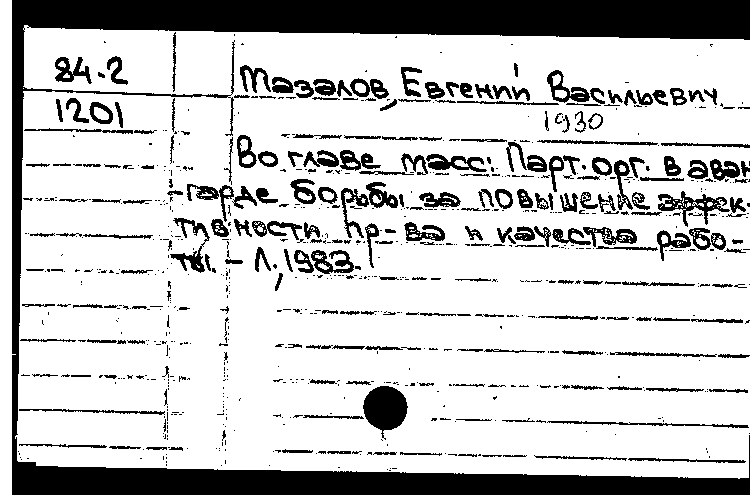 84-2
1201
Мазалов, Евгений Васильевич
1930
Во главе масс: Парт. орг. в аван
-гарде борьбы за повышение эффек-
тивности пр-ва и качества рабо-
ты. – Л., 1983.